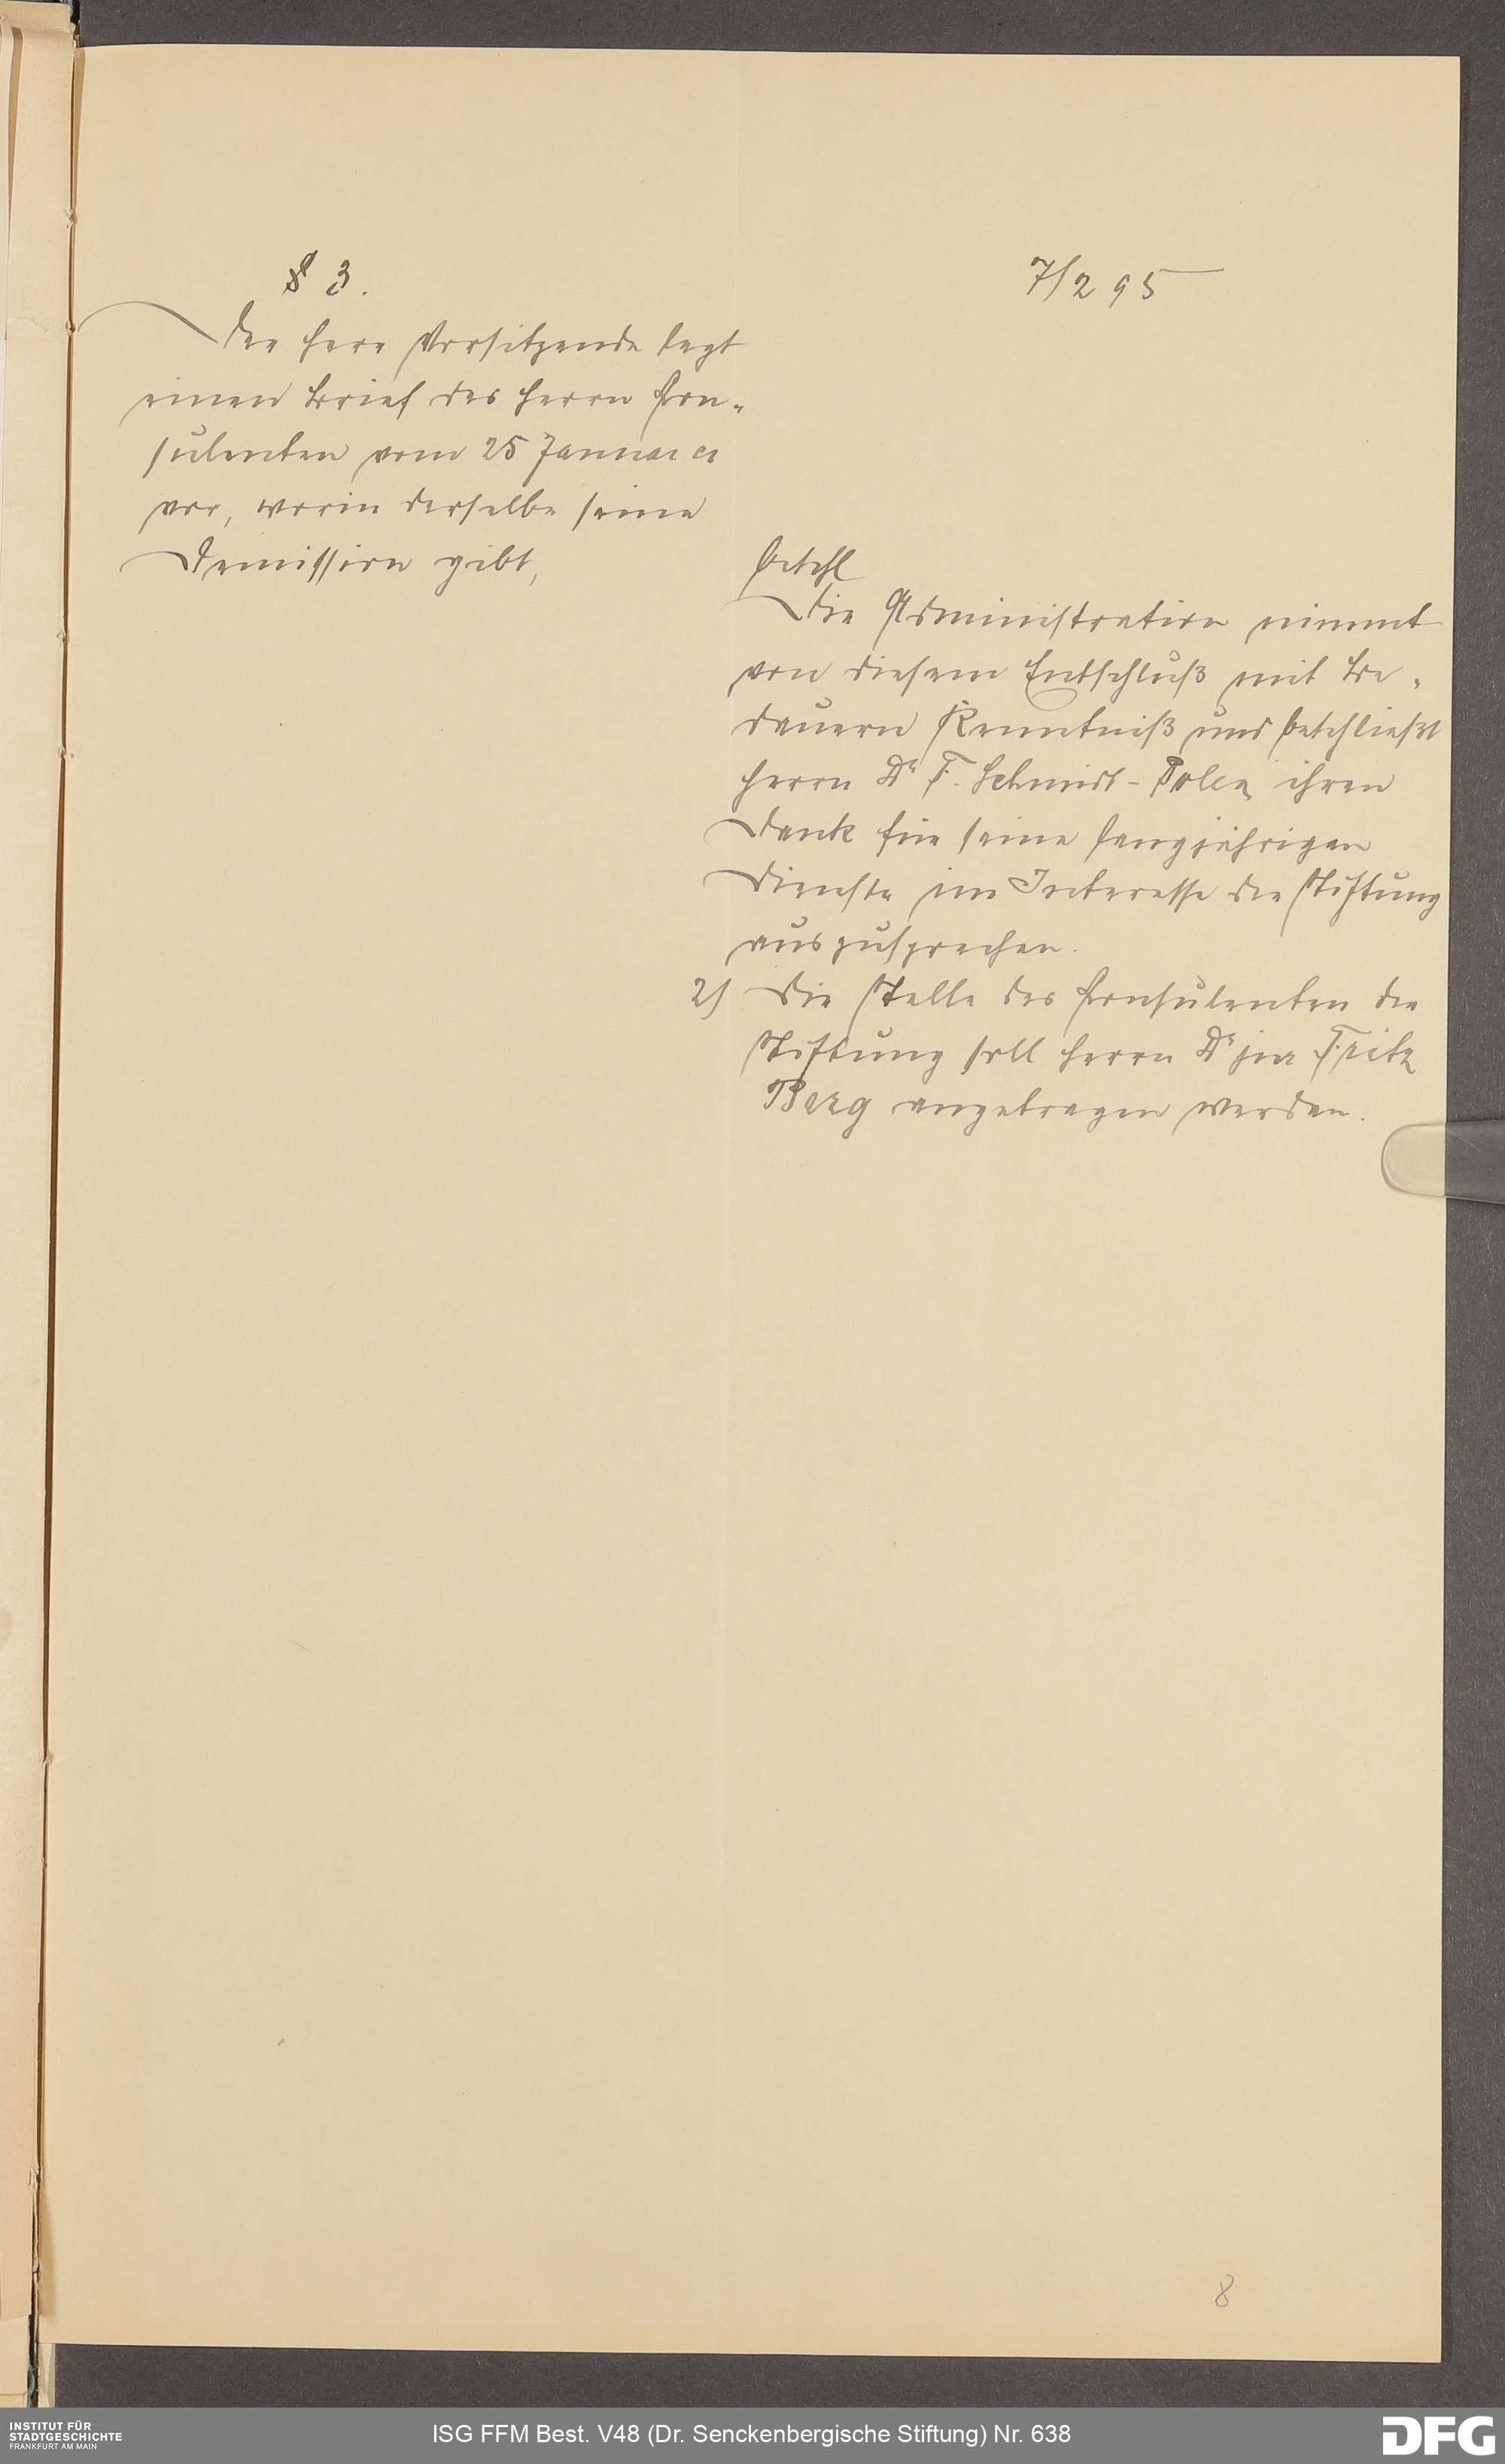 § 3.
7/2 95
Der Herr Vorsitzende legt
einen Brief des Herrn Con-
sulenten vom 25 Januar cr
vor, worin derselbe seine
Demission gibt,
beschl
Die Administration nimmt
von diesem Entschluß mit Be-
dauern Kenntniß und beschließt
Herrn Dr F. Schmidt-Polex ihren
Dank für seine langjährigen
Dienste im Interesse der Stiftung
auszusprechen.
2) Die Stelle des Consulenten der
Stiftung soll Herrn Dr jur Fritz
Berg angetragen werden.
8
INSTITUT FÜR
STADTGESCHICHTE
FRANKFURT AM MAIN
ISG FFM Best. V48 (Dr. Senckenbergische Stiftung) Nr. 638
DFG